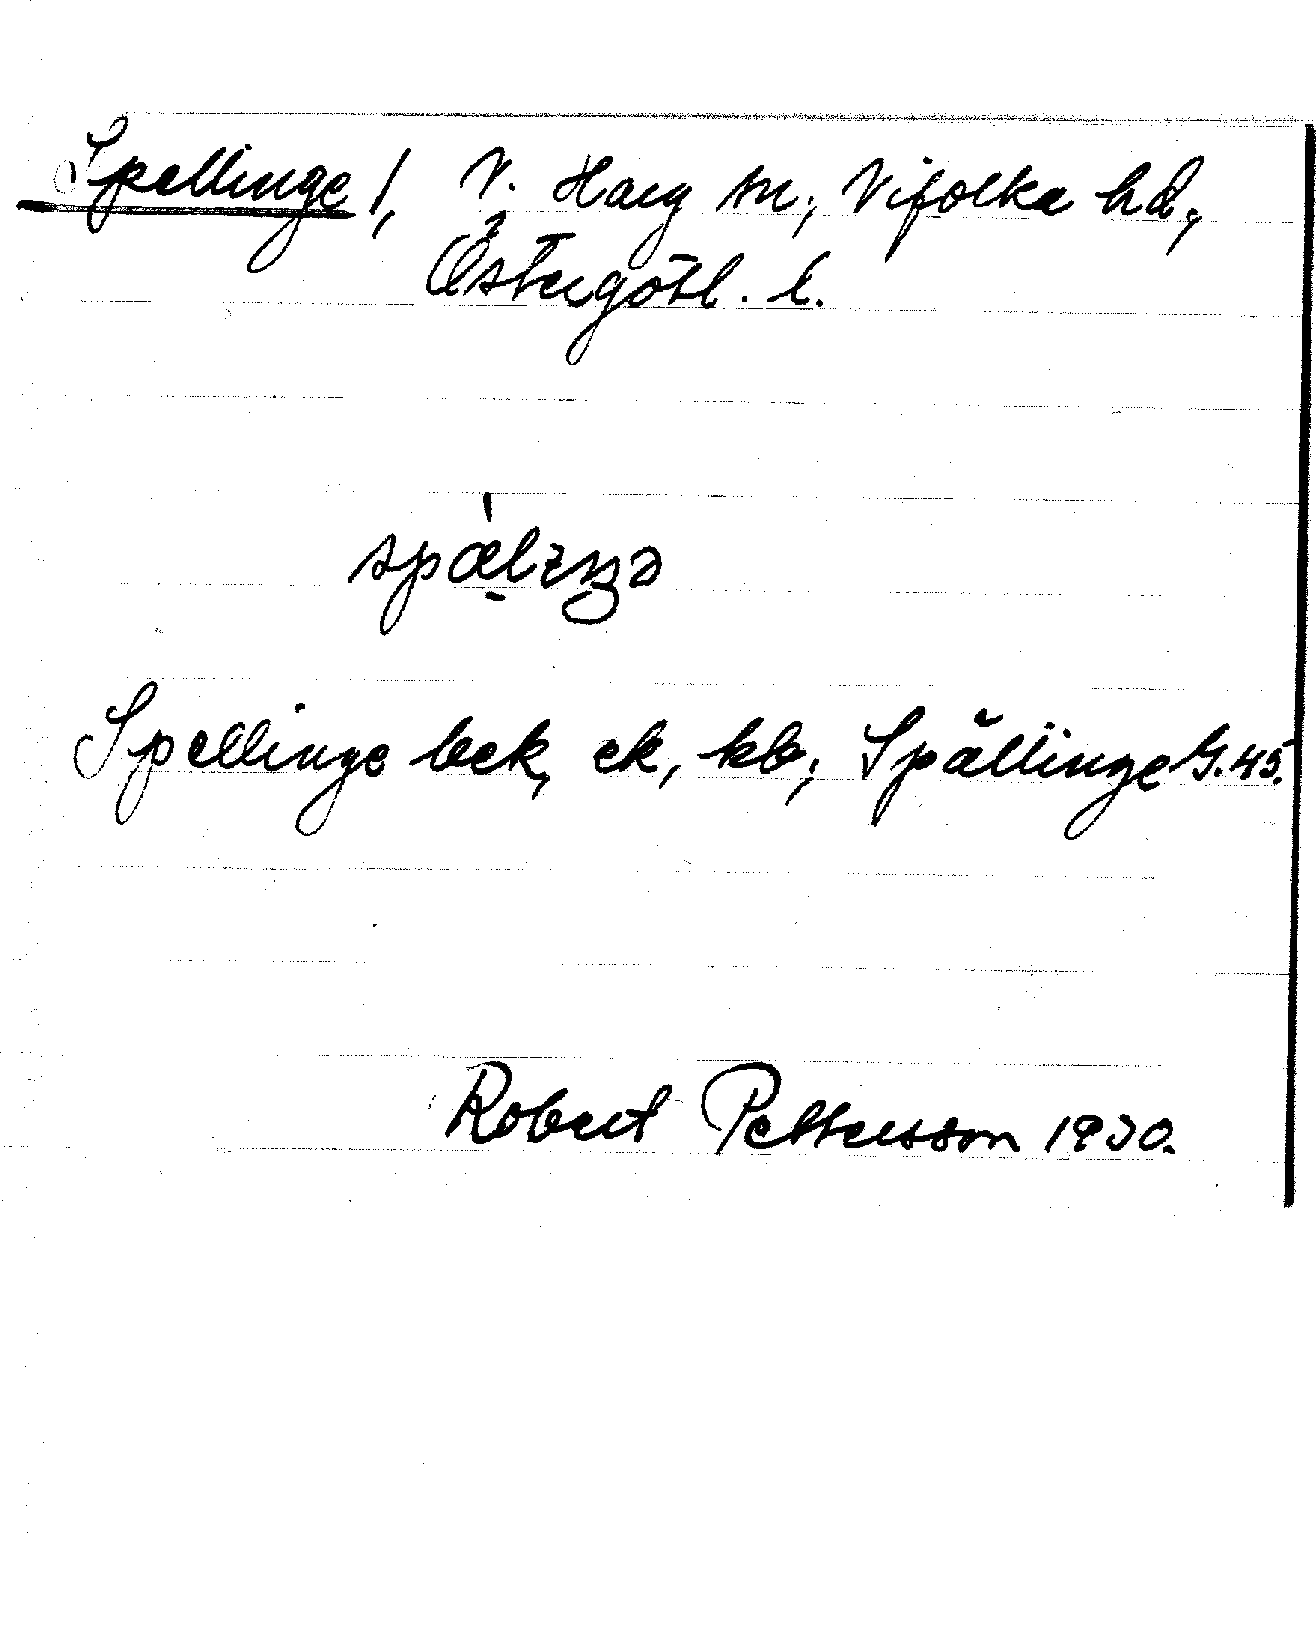 Spellinge!, V. Harg sn., Vifolka hd.,
Östergötl. l.
spæ̀lıŋə
Spellinge bek, ek, kb; Spällinge G.45.
Robert Pettersson 1930.